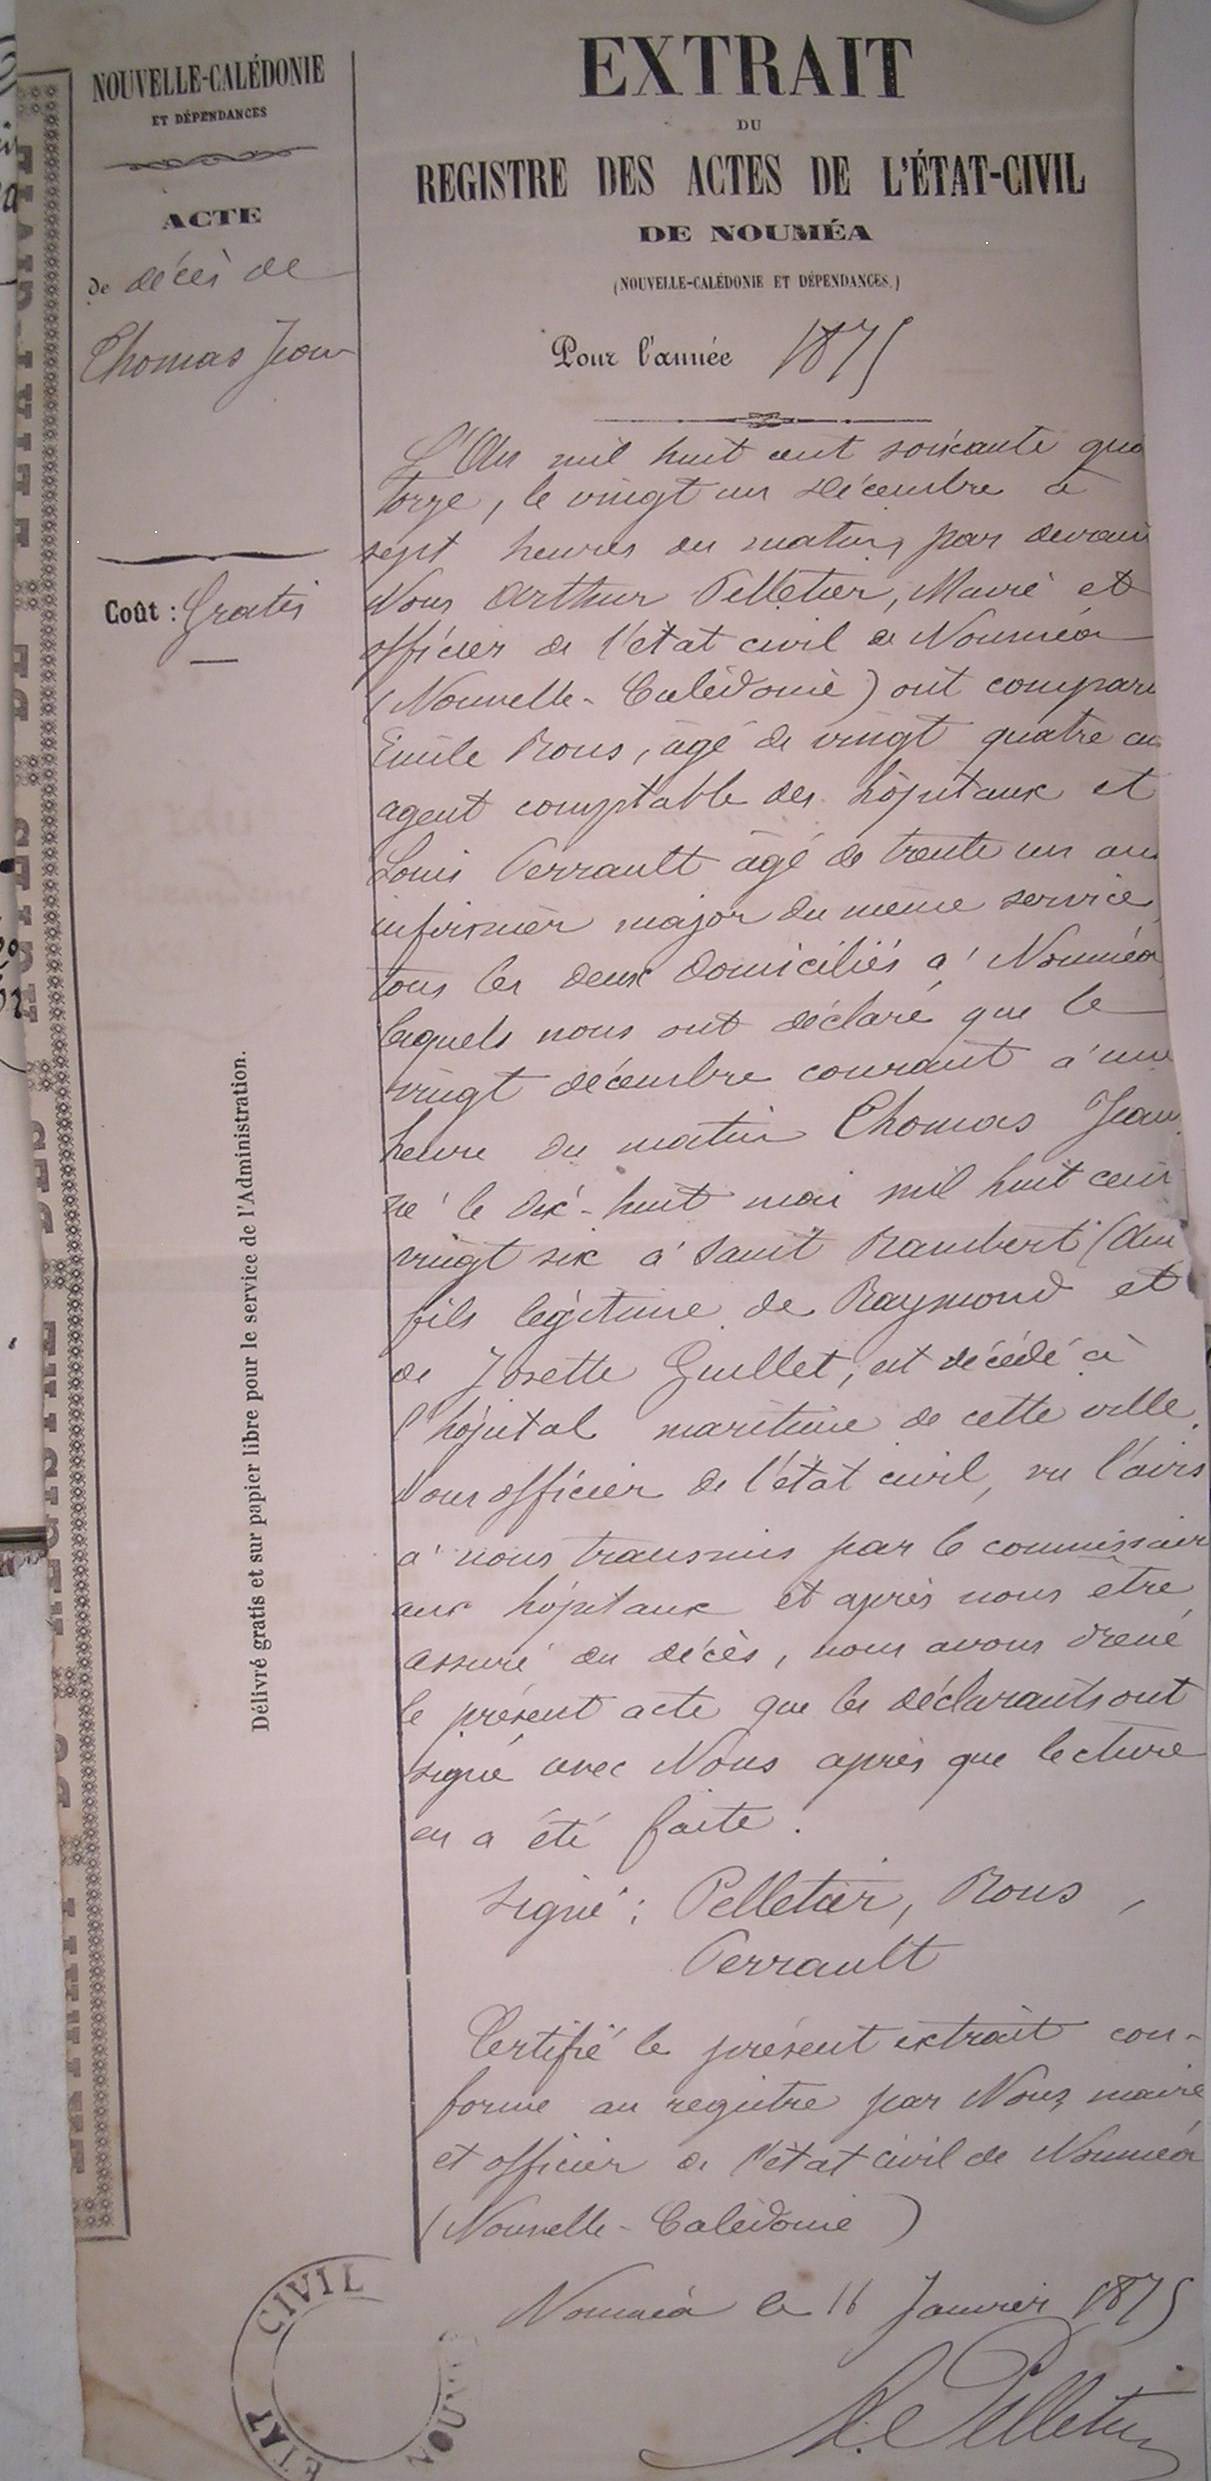 NOUVELLE-CALÉDONIE
ET DÉPENDANCES
ACTE
de décès de
Thomas Jean
Coût : Gratis
Délivré gratis et sur papier libre pour le service de l'Administration.
EXTRAIT
DU
REGISTRE DES ACTES DE L'ÉTAT-CIVIL
DE NOUMÉA
(NOUVELLE-CALÉDONIE ET DÉPENDANCES.)
Pour l'année 1875
L'An mil huit cent soixante qua
torze, le vingt un Décembre à
sept heures du matin, par devant
Nous Arthur Pelletier, Maire et
officier de l'état civil de Nouméa
(Nouvelle-Calédonie) ont comparu
Emile Rous, âgé de vingt quatre an
agent comptable des hôpitaux et
Louis Perrault âgé de trente un ans
infirmier major du même service
tous les deux domiciliés à Nouméa
lesquels nous ont déclaré que le
vingt décembre courant à une
heure du matin Thomas Jean
né le dix-huit mai mil huit cent
vingt six à Saint Rambert (Ain
fils légitime de Raymond et
de Josette Guillet, est décédé à
l'hôpital maritime de cette ville.
Nous officier de l'état civil, vu l'avis
à nous transmis par le commissaire
aux hôpitaux et après nous être
assuré du décès, nous avons dressé
le présent acte que les déclarants ont
signé avec Nous après que lecture
en a été faite.
Signé : Pelletier, Rous,
Perrault
Certifié le présent extrait con-
forme au registre par Nous, maire
et officier de l'état civil de Nouméa
(Nouvelle-Calédonie)
Nouméa le 16 Janvier 1875
A. Pelletier
ETAT CIVIL
NOU